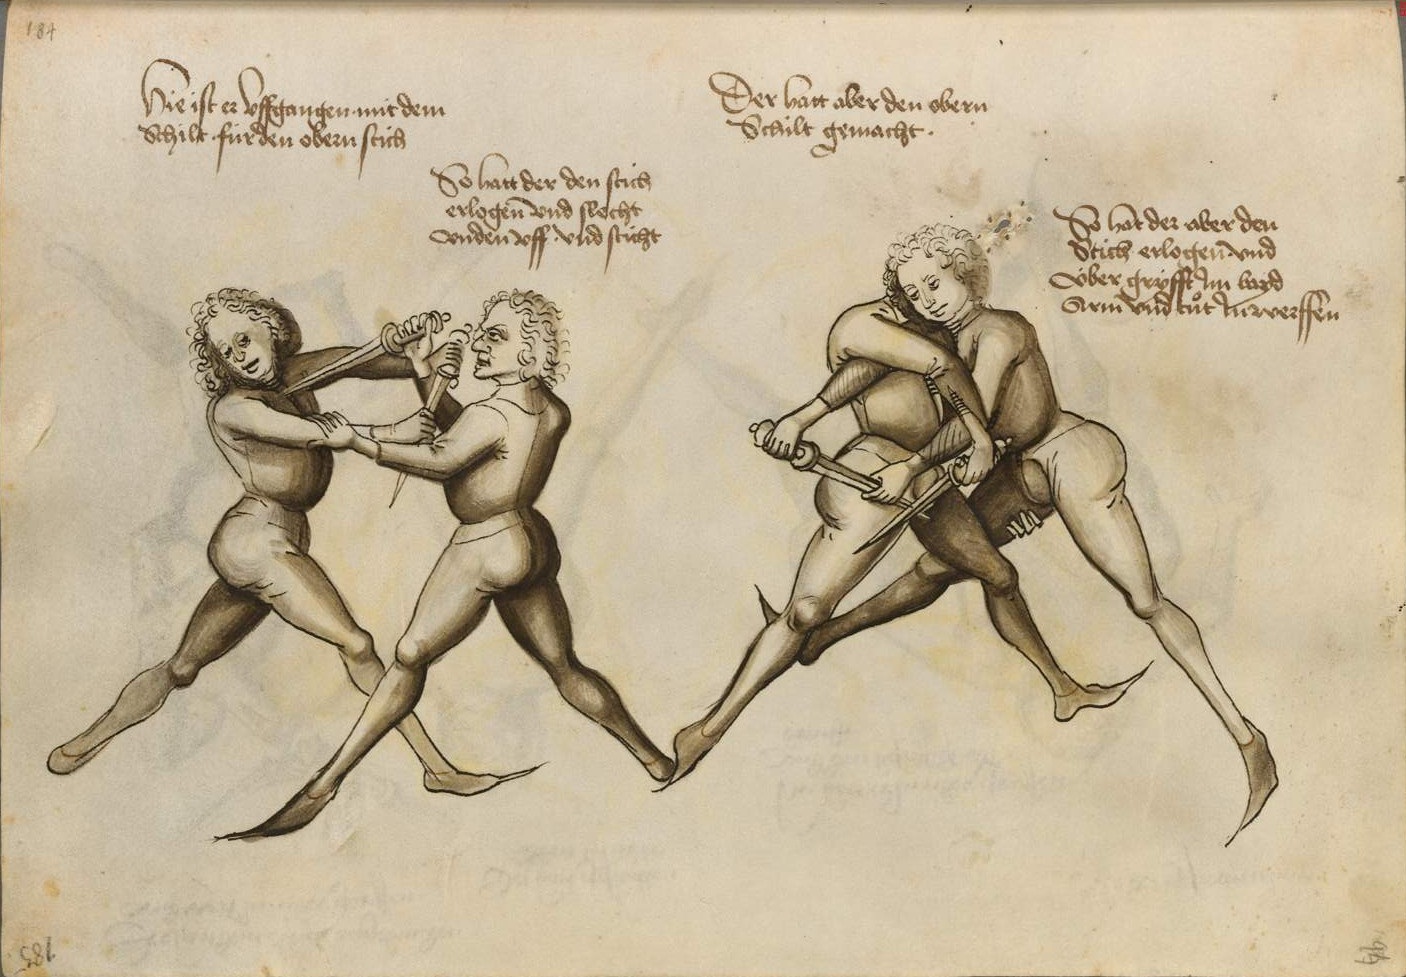 184
Hie ist er vffgangen mit dem
Schilt für den obern stich
So hatt der den stich
erlogen vnd slecht
vnden vff vnd sticht
Der hatt aber den obern
Schilt gemacht
So hat der aber den
Stich erlogen vnd
Vber grÿfft Im baÿd
Arm vnd tůt Inwerffen
185